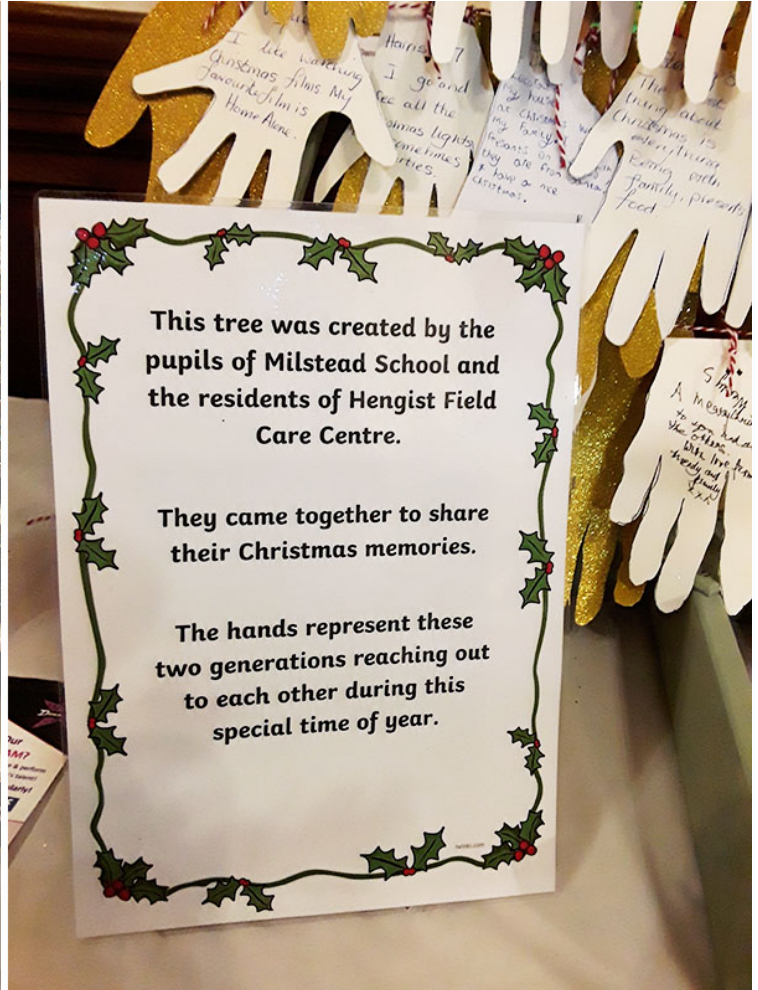 I like watching
Christmas films My
favourite film is
Home Alone.
7
I go and
see all the
lights
sometimes
my
at Christmas
my family.
presents on
they are from
& have a nice
Christmas.
The
thing about
Christmas is
everything
Being with
family, presents
food
A merry
to you and
the others.
With love from
and
family
This tree was created by the
pupils of Milstead School and
the residents of Hengist Field
Care Centre.
They came together to share
their Christmas memories.
The hands represent these
two generations reaching out
to each other during this
special time of year.
twinkl.com
our
AM?
& perform